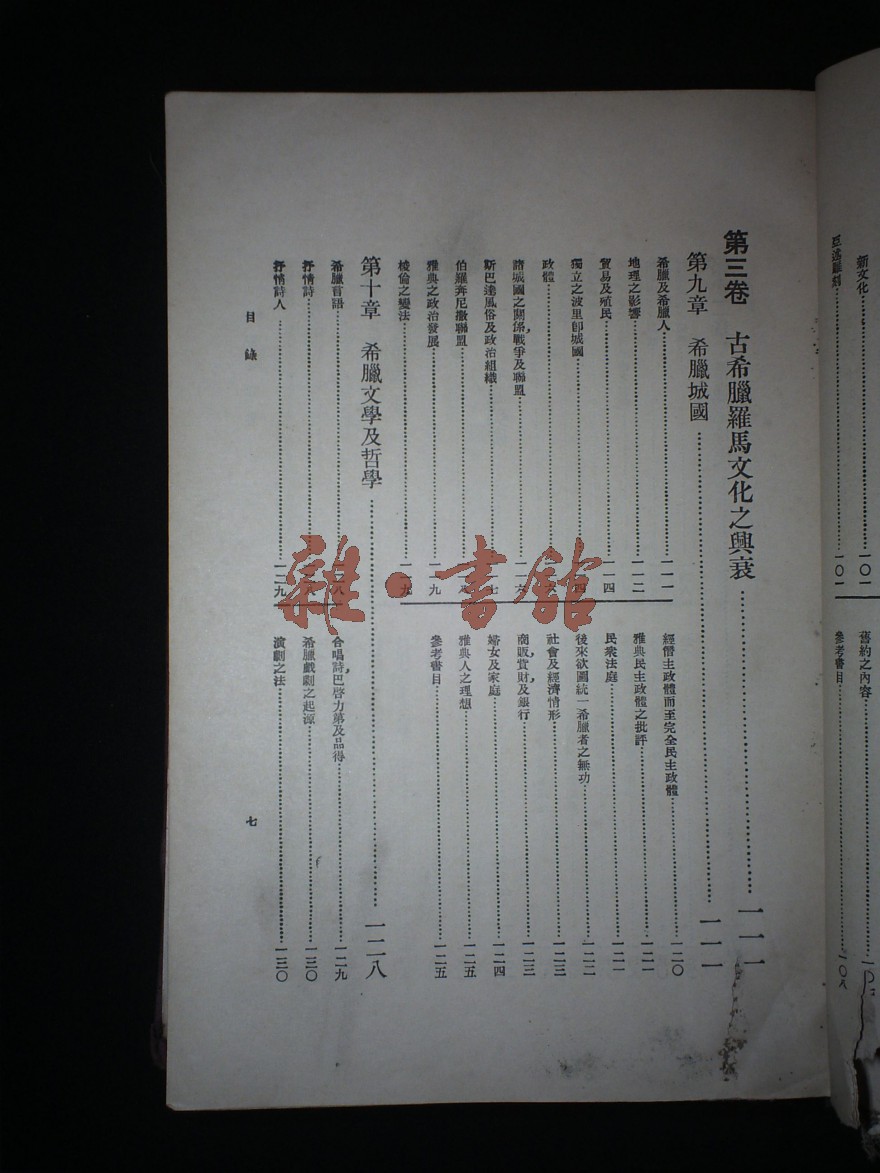 新文化……一〇一
亞述雕刻……一〇一
舊約之內容……一〇
參考書目……一〇八
第三卷 古希臘羅馬文化之興衰……一一一
第九章 希臘城國……一一一
希臘及希臘人……一一一
地理之影響……一一二
貿易及殖民……一一四
獨立之波里卽城國……四
政體……
諸城國之關係,戰爭及聯盟……一一六
斯巴達風俗及政治組織……七
伯羅奔尼撒聯盟……八
雅典之政治發展……一一九
梭倫之變法……一一九
經僭主政體而至完全民主政體……一二〇
雅典民主政體之批評……一二一
民衆法庭……一二一
後來欲圖統一希臘者之無功……一二二
社會及經濟情形……一二三
商販,貨財及銀行……一二三
婦女及家庭……一二四
雅典人之理想……一二五
參考書目……一二五
第十章 希臘文學及哲學……一二八
希臘言語……二八
抒情詩……
抒情詩人……一二九
合唱詩,巴啓力第及品得……一二九
希臘戲劇之起源……一三〇
演劇之法……一三〇
目錄
七
雜·書館